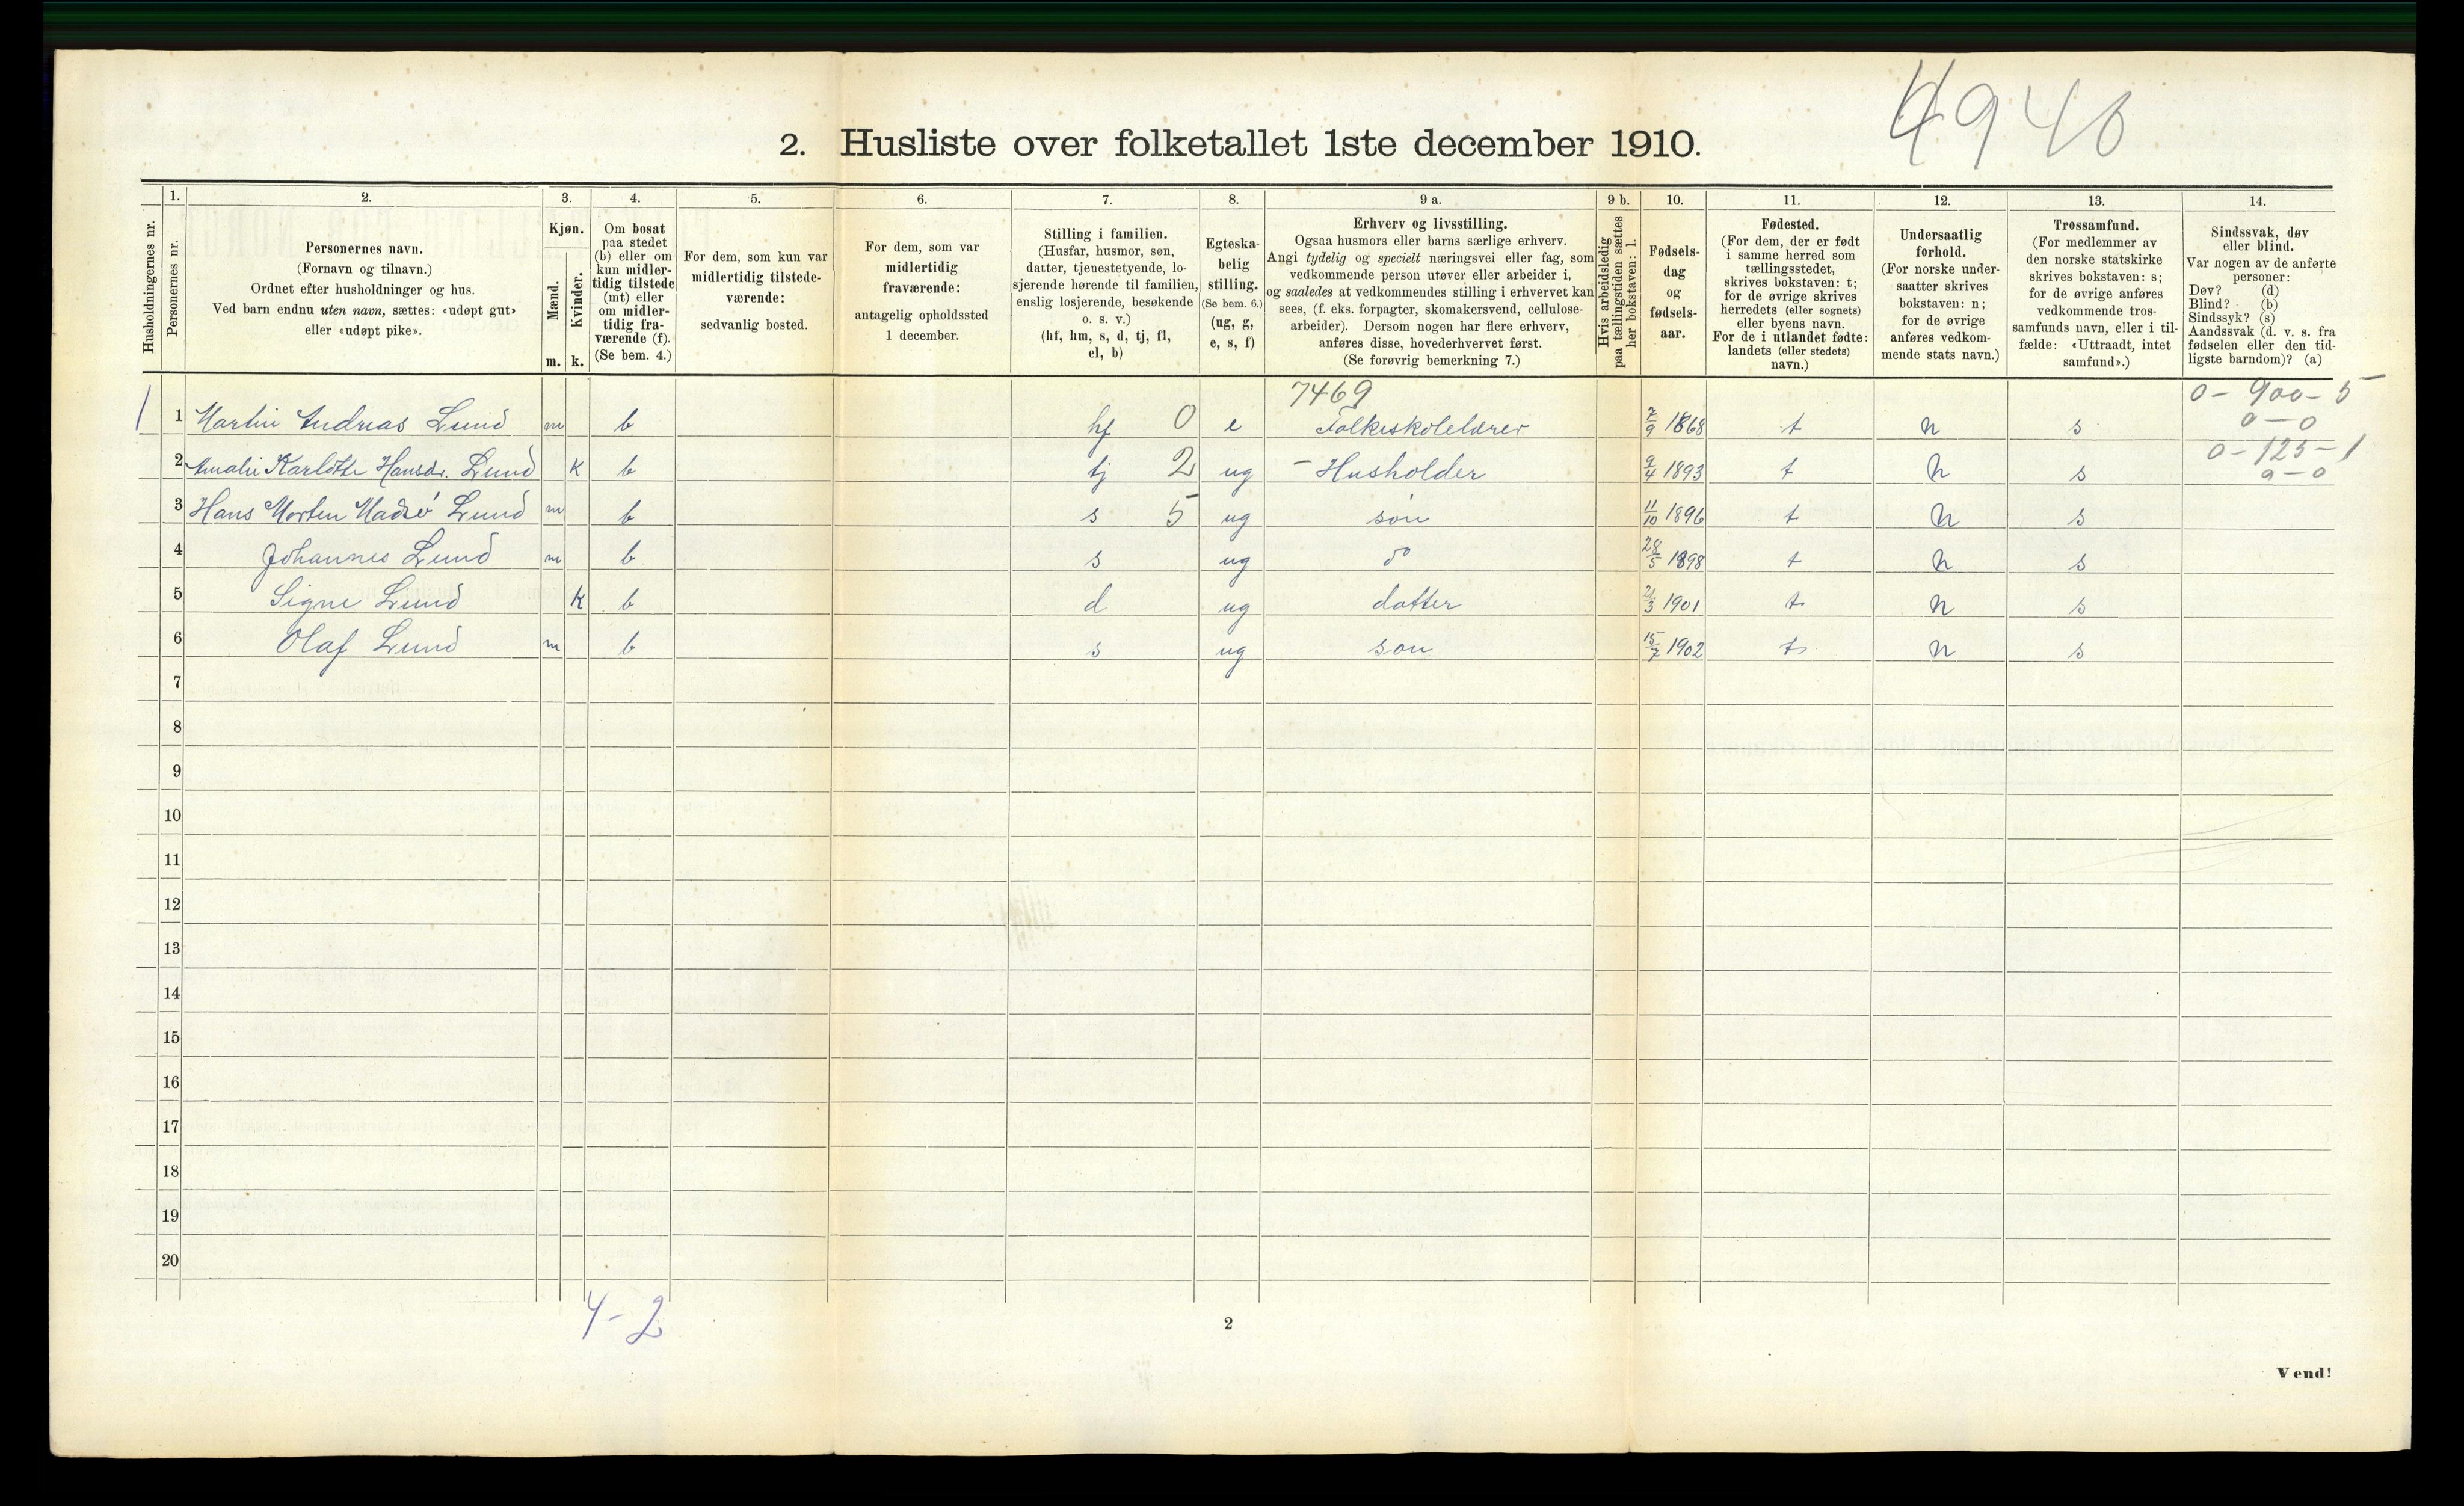 4946
2. Husliste over folketallet 1ste december 1910.
Husholdningernes nr.
1.
Personernes nr.
2.
Personernes navn.
(Fornavn og tilnavn.)
Ordnet efter husholdninger og hus.
Ved barn endnu uten navn, sættes: «udøpt gut»
eller «udøpt pike».
3.
Kjøn.
Mænd.
m.
Kvinder.
k.
4.
Om bosat
paa stedet
(b) eller om
kun midler-
tidig tilstede
(mt) eller
om midler-
tidig fra-
værende (f).
(Se bem. 4.)
5.
For dem, som kun var
midlertidig tilstede-
værende:
sedvanlig bosted.
6.
For dem, som var
midlertidig
fraværende:
antagelig opholdssted
1 december.
7.
Stilling i familien.
(Husfar, husmor, søn,
datter, tjenestetyende, lo-
sjerende hørende til familien,
enslig losjerende, besøkende
o. s. v.)
(hf, hm, s, d, tj, fl,
el, b)
8.
Egteska-
belig
stilling.
(Se bem. 6.)
(ug, g,
e, s, f)
9 a.
Erhverv og livsstilling.
Ogsaa husmors eller barns særlige erhverv.
Angi tydelig og specielt næringsvei eller fag, som
vedkommende person utøver eller arbeider i,
og saaledes at vedkommendes stilling i erhvervet kan
sees, (f. eks. forpagter, skomakersvend, cellulose-
arbeider). Dersom nogen har flere erhverv,
anføres disse, hovederhvervet først.
(Se forøvrig bemerkning 7.)
9 b.
Hvis arbeidsledig
paa tællingstiden sættes
her bokstaven: l.
10.
Fødsels-
dag
og
fødsels-
aar.
11.
Fødested.
(For dem, der er født
i samme herred som
tællingsstedet,
skrives bokstaven: t;
for de øvrige skrives
herredets (eller sognets)
eller byens navn.
For de i utlandet fødte:
landets (eller stedets)
navn.)
12.
Undersaatlig
forhold.
(For norske under-
saatter skrives
bokstaven: n;
for de øvrige
anføres vedkom-
mende stats navn.)
13.
Trossamfund.
(For medlemmer av
den norske statskirke
skrives bokstaven: s;
for de øvrige anføres
vedkommende tros-
samfunds navn, eller i til-
fælde: «Uttraadt, intet
samfund».)
14.
Sindssvak, døv
eller blind.
Var nogen av de anførte
personer:
Døv? (d)
Blind? (b)
Sindssyk? (s)
Aandssvak (d. v. s. fra
fødselen eller den tid-
ligste barndom)? (a)
7469 0 - 900 - 5
1 1 Martin Andreas Lund m b hf 0 e Folkeskolelærer 7/9 1868 t n s 0 - 0
0 - 125 - 1
2 Amalie Karlotte Hansdr. Lund k b tj 2 ug - Husholder 9/4 1893 t n s 0 - 0
3 Hans Morten Lund m b s 5 ug søn 11/10 1896 t n s
4 Johannes Lund m b s ug do 28/5 1898 t n s
5 Signe Lund k b d ug datter 21/3 1901 t n s
6 Olaf Lund m b s ug søn 15/7 1902 t n s
7
8
9
10
11
12
13
14
15
16
17
18
19
20
4 - 2
2
Vend!